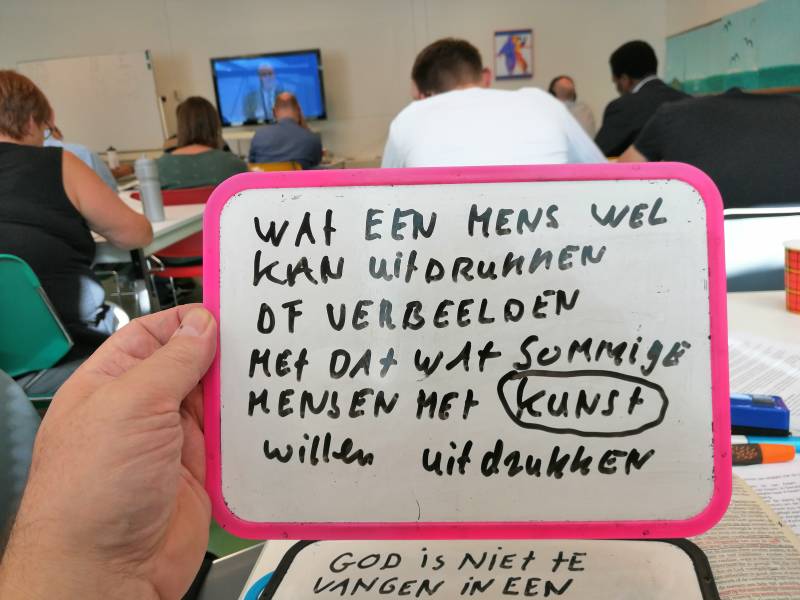 WAT EEN MENS WEL
KAN UitDRUKKEN
OF VERBEELDEN
MET DAT WAT SOMMIGE
MENSEN MET KUNST
willen uitdrukken
GOD IS NIET TE
VANGEN IN EEN